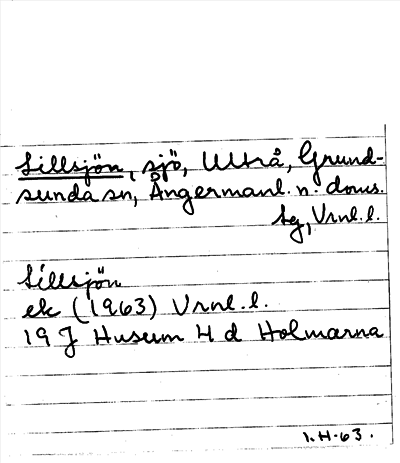 Sillsjön, sjö, Ultrå, Grund-
sunda sn, Ångermanl. n. doms.
sg, Vrnl. l.
Sillsjön
ek (1963) Vrnl. l.
19 J Husum H d Holmarna
1. H-63.